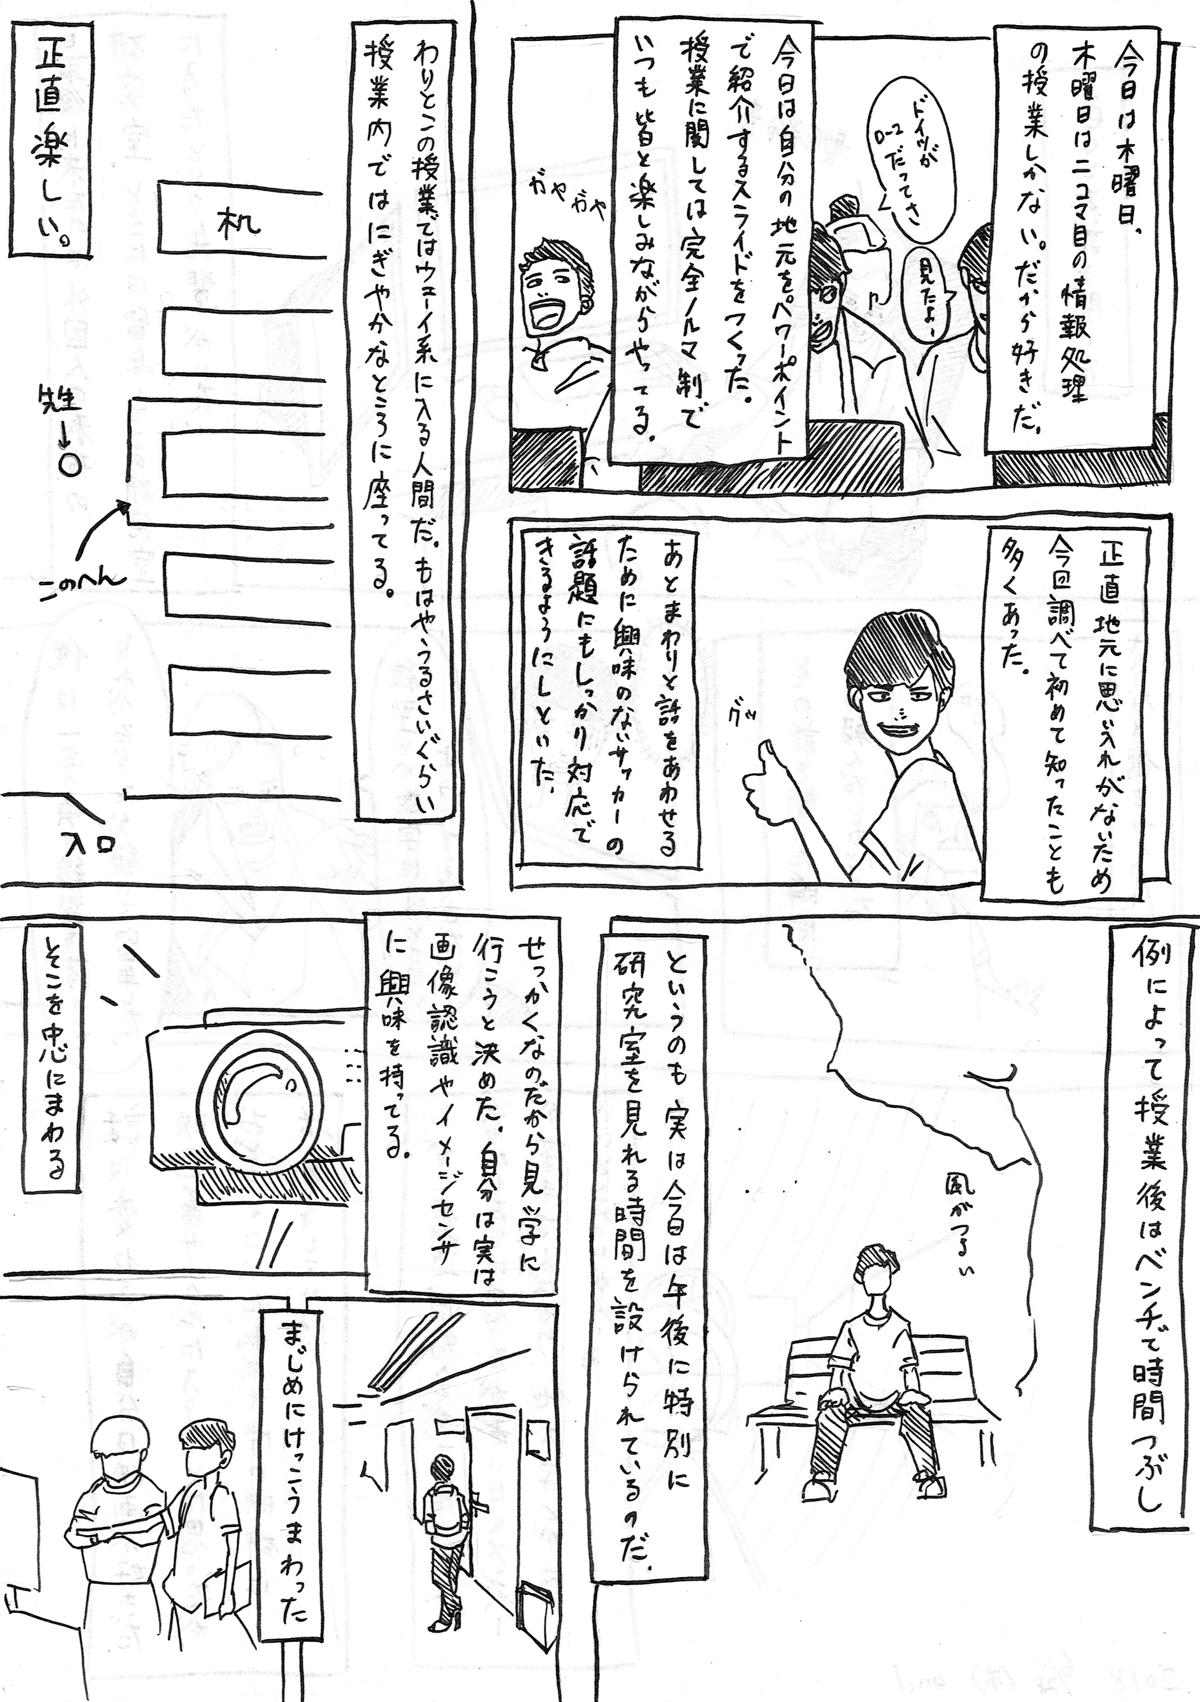 今日は木曜日、
木曜日は二コマ目の情報処理
の授業しかない。だから好きだ。
ドイツが
0-2
だってさ
見たよ〜
今日は自分の地元をパワーポイント
で紹介するスライドをつくった。
授業に関しては完全ノルマ制で
いつも皆と楽しみながらやってる。
ガヤガヤ
正直地元に思い入れがないため
今回調べて初めて知ったことも
多くあった。
グッ
あとまわりと話をあわせる
ために興味のないサッカーの
話題にもしっかり対応で
きるようにしといた。
わりとこの授業ではウェーイ系に入る人間だ。もはや、うるさいぐらい
授業内ではにぎやかなところに座ってる。
机
先生
このへん
入口
正直楽しい。
例によって授業後はベンチで時間つぶし
風がつよい
というのも実は今日は午後に特別に
研究室を見れる時間を設けられているのだ。
せっかくなのだから見学に
行こうと決めた。自分は実は
画像認識やイメージセンサ
に興味を持ってる。
そこを中心にまわる
まじめにけっこうまわった